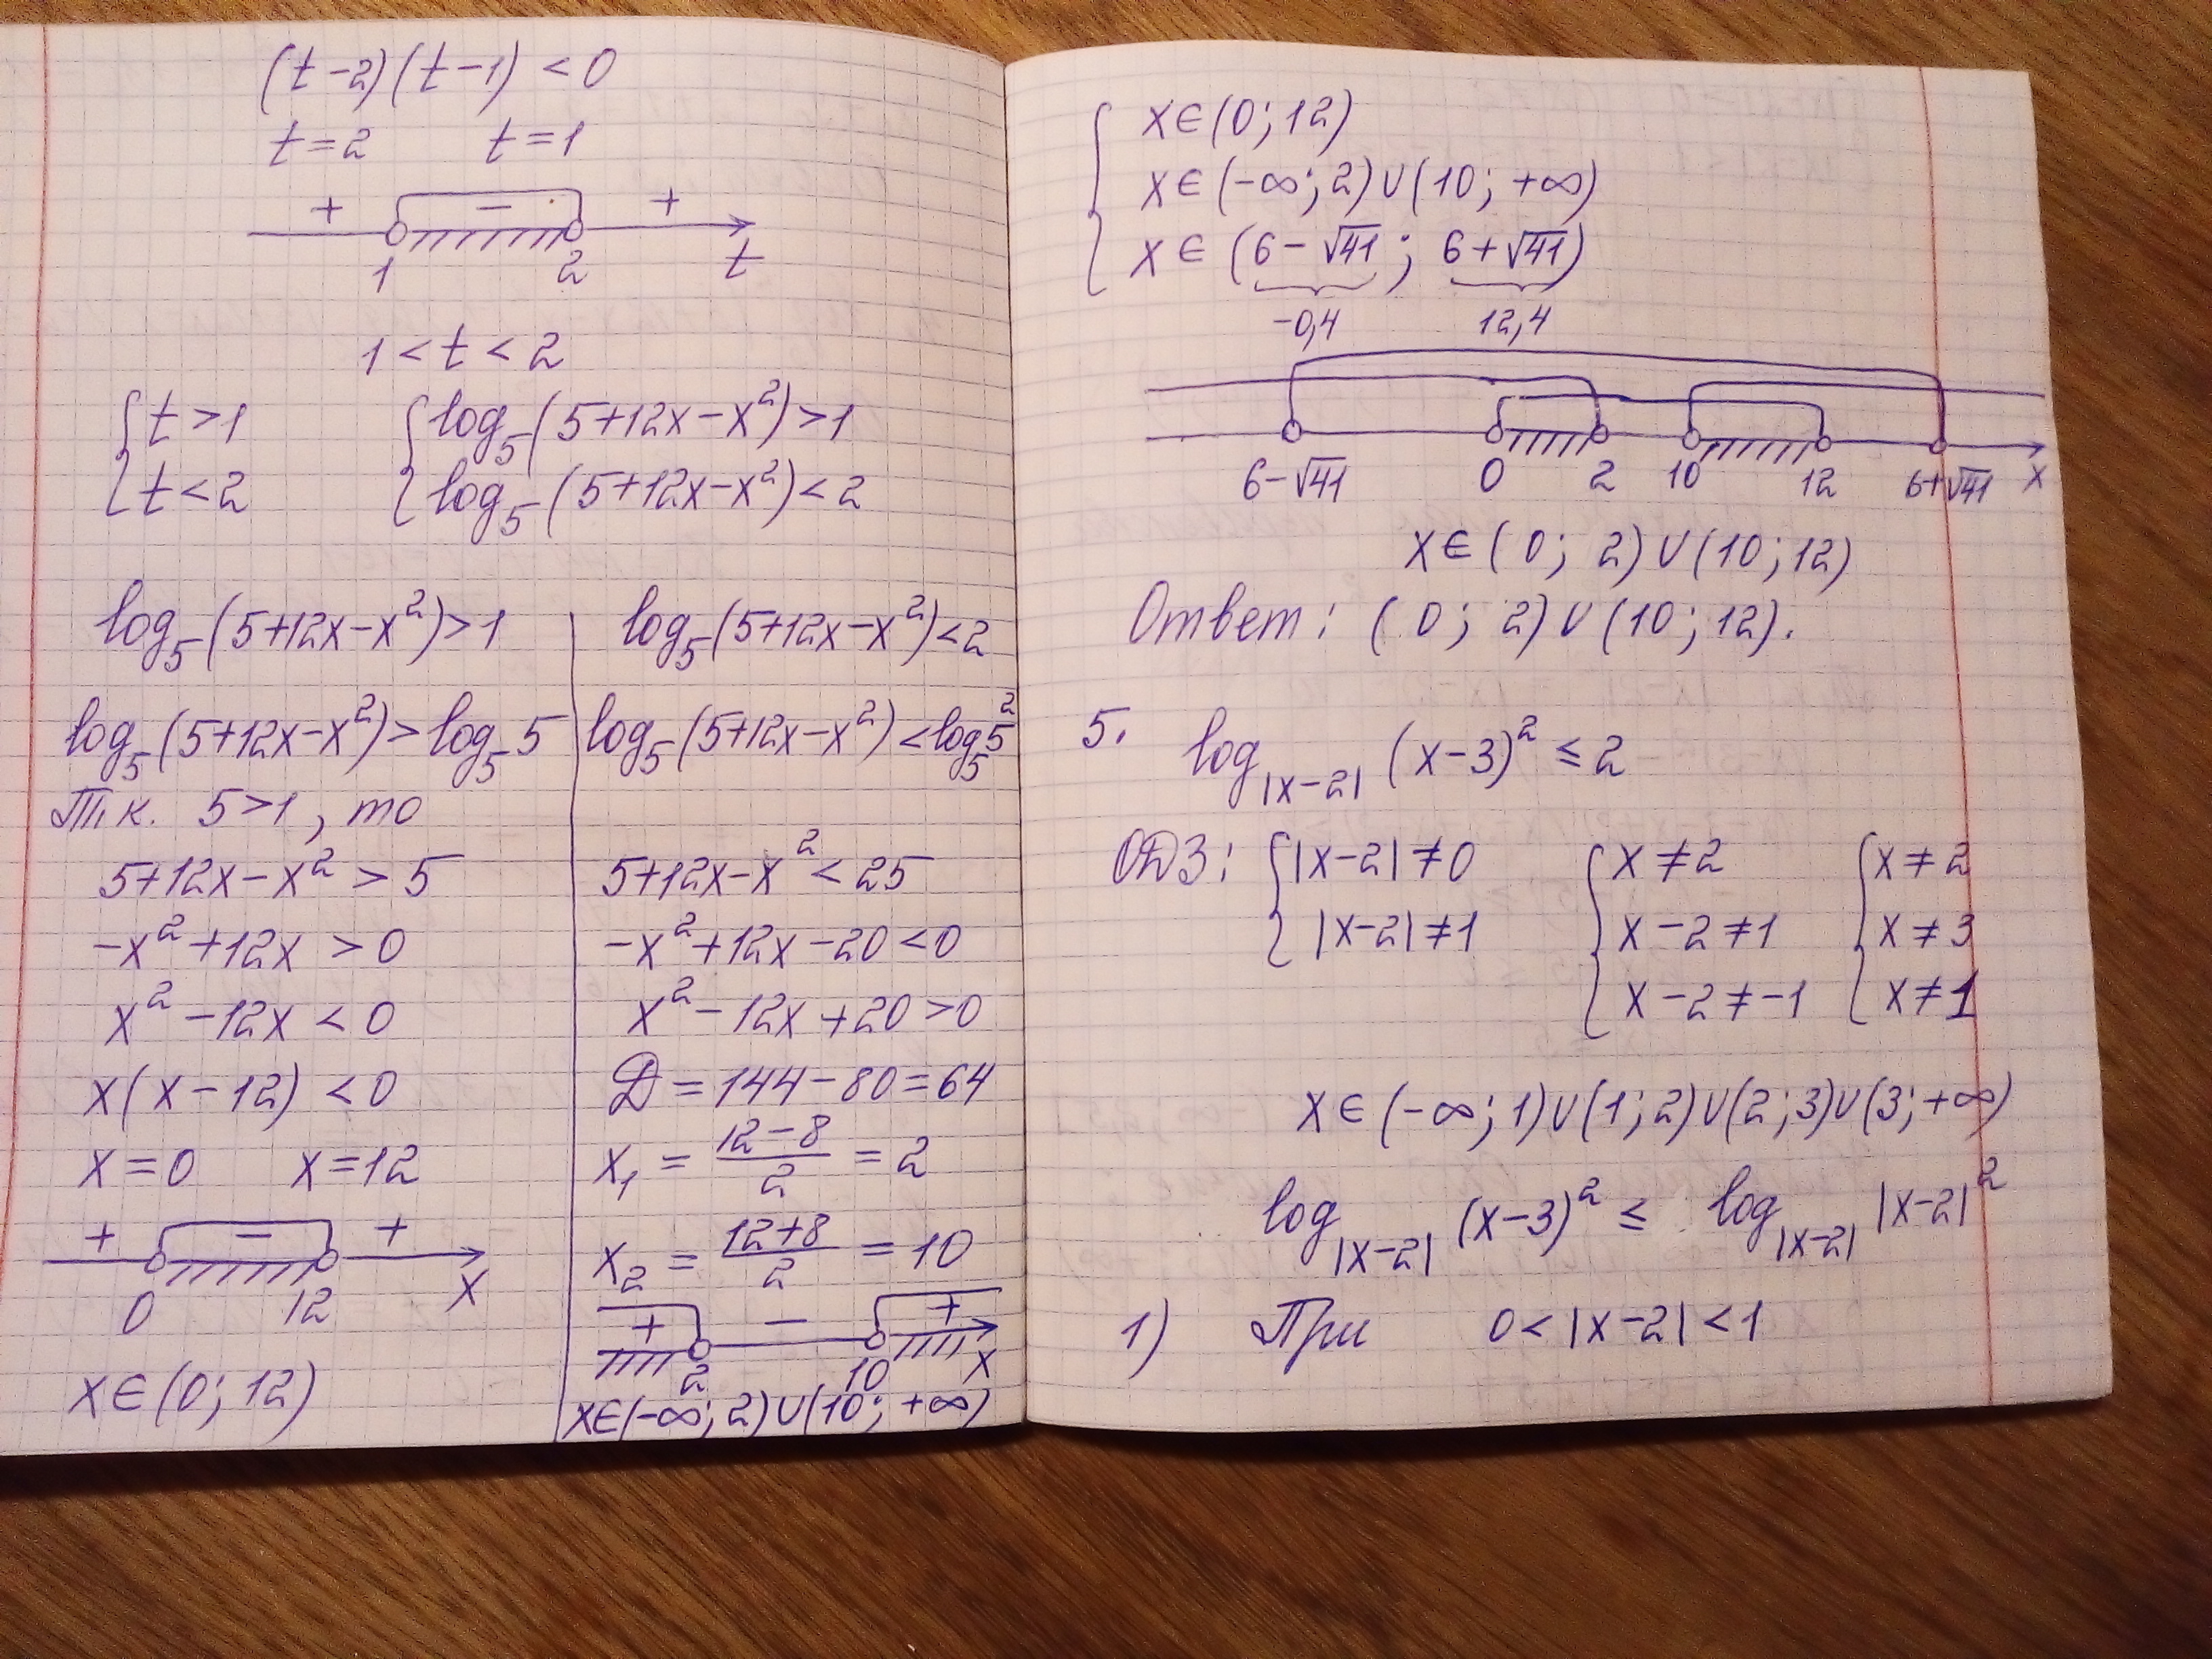 (t-2)(t-1) < 0
t=2 t=1
+ − +
1 2 t
1 < t < 2
{ t>1 { log₅(5+12x-x²)>1
{ t<2 { log₅(5+12x-x²)<2
log₅(5+12x-x²)>1
log₅(5+12x-x²)>log₅5
Т.к. 5>1, то
5+12x-x² > 5
-x²+12x > 0
x²-12x < 0
x(x-12) < 0
x=0 x=12
+ − +
0 12 x
x∈(0;12)
log₅(5+12x-x²)<2
log₅(5+12x-x²)<log₅5²
5+12x-x² < 25
-x²+12x-20<0
x²-12x+20>0
D=144-80=64
x₁ = (12-8)/2 = 2
x₂ = (12+8)/2 = 10
+ − +
2 10 x
x∈(-∞;2)∪(10;+∞)
{ x∈(0;12)
{ x∈(-∞;2)∪(10;+∞)
{ x∈(6-√41; 6+√41)
-0,4 12,4
6-√41 0 2 10 12 6+√41 x
x∈(0; 2)∪(10;12)
Ответ: (0; 2)∪(10;12).
5. log|x-2| (x-3)² ≤ 2
ОДЗ: { |x-2|≠0 { x≠2 { x≠2
{ |x-2|≠1 { x-2≠1 { x≠3
{ x-2≠-1 { x≠1
x∈(-∞;1)∪(1;2)∪(2;3)∪(3;+∞)
log|x-2| (x-3)² ≤ log|x-2| |x-2|²
1) При 0<|x-2|<1